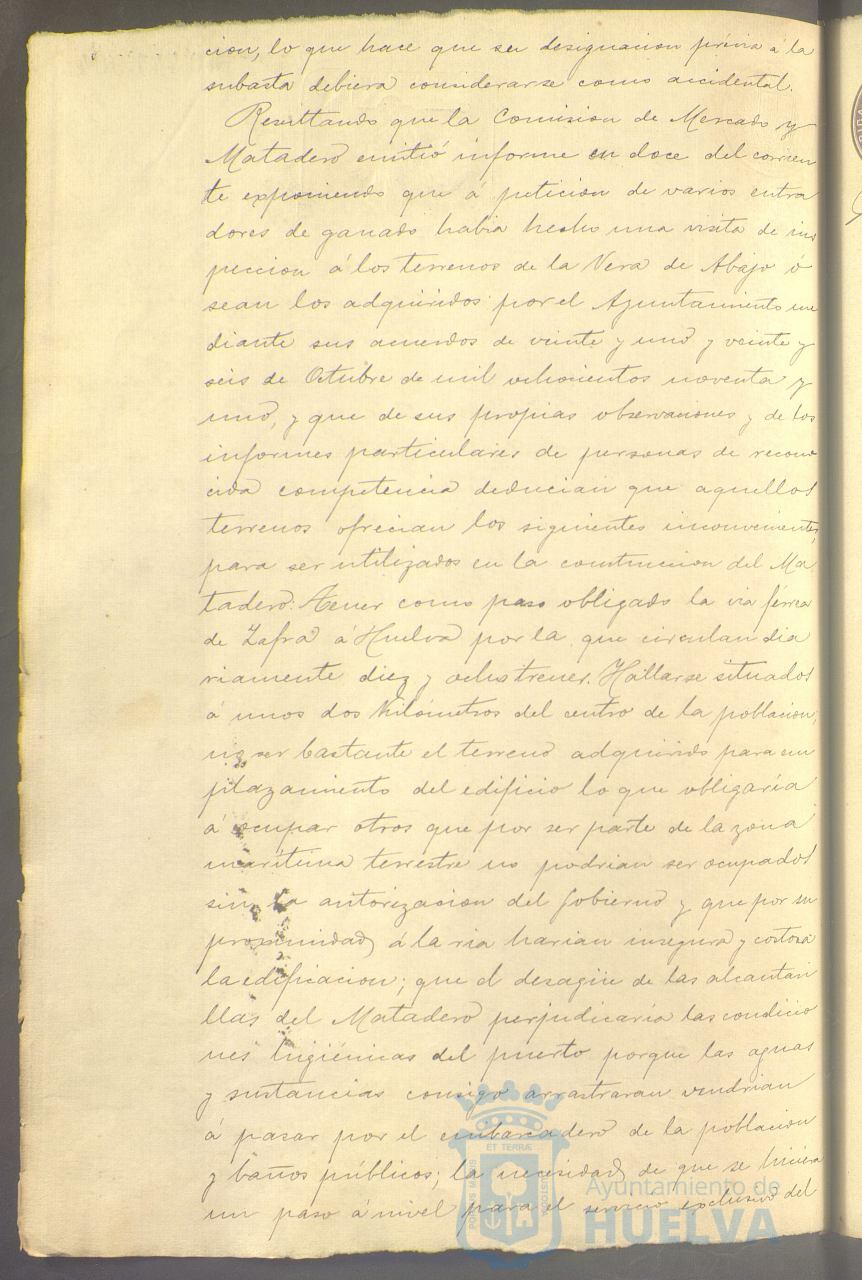 cion, lo que hace que su designacion previa á la
subasta debiera considerarse como accidental.
Resultando que la Comision de Mercado y
Matadero emitió informe en doce del corrien
te exponiendo que á peticion de varios entra
dores de ganado habia hecho una visita de ins
peccion á los terrenos de la Vera de Abajo ó
sean los adquiridos por el Ayuntamiento me
diante sus acuerdos de veinte y uno y veinte y
seis de Octubre de mil ochocientos noventa y
uno, y que de sus propias observaciones y de los
informes particulares de personas de recono
cida competencia deducian que aquellos
terrenos ofrecian los siguientes inconvenientes
para ser utilizados en la construccion del Ma
tadero: Tener como paso obligado la via ferrea
de Zafra á Huelva por la que circulan dia
riamente diez y ocho trenes. Hallarse situados
á unos dos kilómetros del centro de la poblacion;
no ser bastante el terreno adquirido para em
plazamiento del edificio lo que obligaría
á ocupar otros que por ser parte de la zona
maritima terrestre no podrian ser ocupados
sin la autorizacion del Gobierno y que por su
proximidad á la ria harian insegura y costosa
la edificacion; que el desagüe de las alcantari
llas del Matadero perjudicaria las condicio
nes higiénicas del puerto porque las aguas
y sustancias consigo arrastraran vendrian
á pasar por el embarcadero de la poblacion
y baños públicos; la necesidad de que se hiciera
un paso á nivel para el servicio exclusivo del
ET TERRÆ
PORTUS MARIS
CUSTODIA
Ayuntamiento de
HUELVA